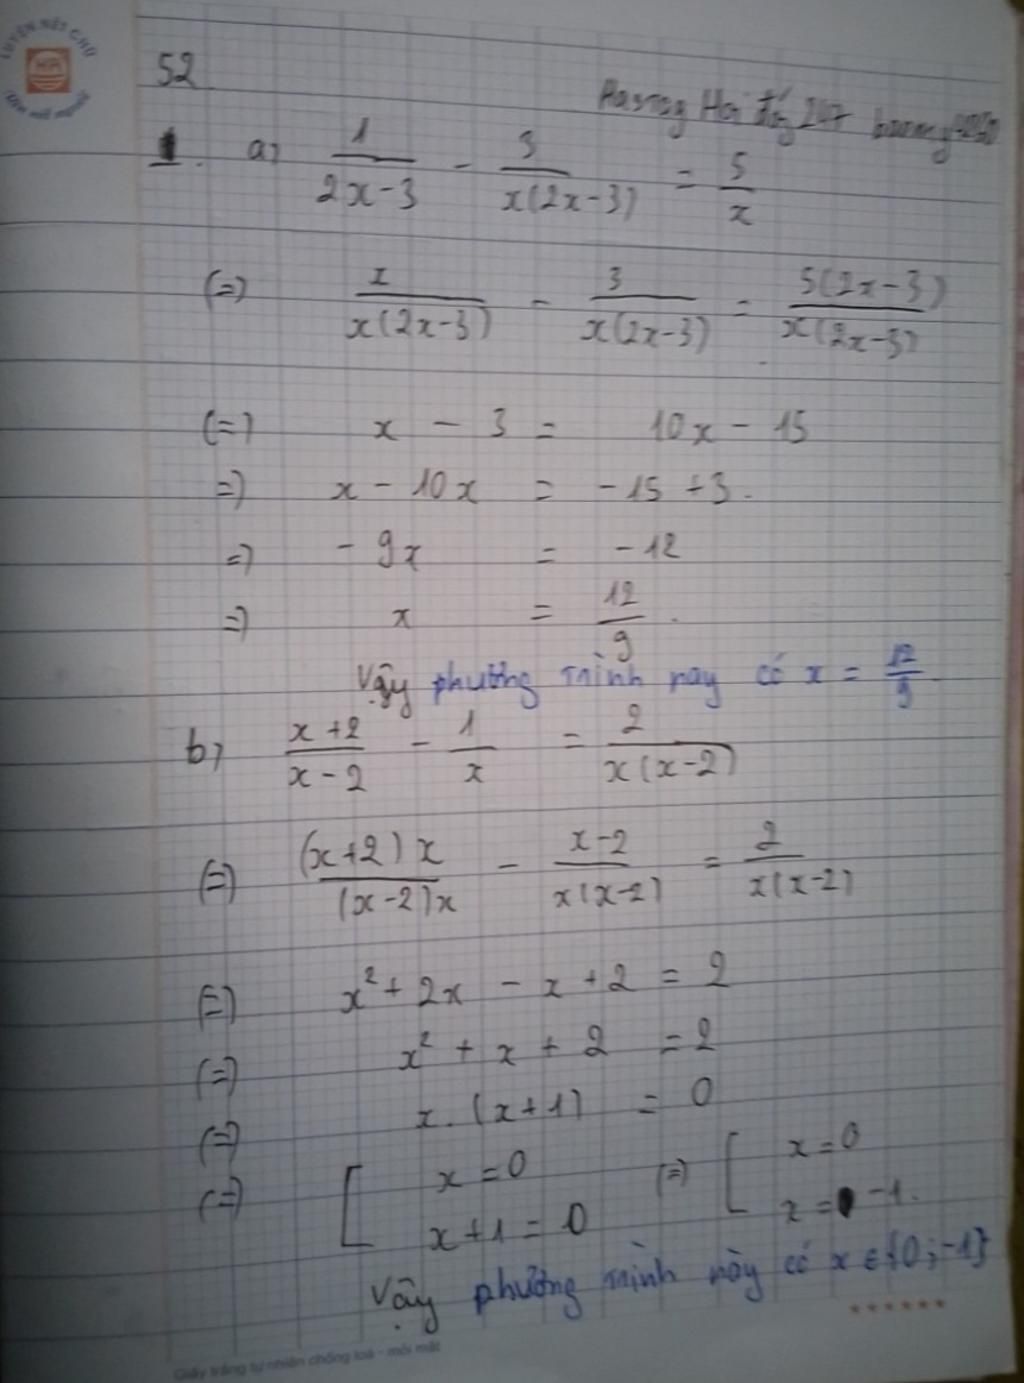 LUYỆN NÉT CHỮ
HA
RÈN NẾT NGƯỜI
52
Hoi đáp 247
1. a) 1/(2x-3) - 3/(x(2x-3)) = 5/x
(=) x/(x(2x-3)) - 3/(x(2x-3)) = 5(2x-3)/(x(2x-3))
(=) x - 3 = 10x - 15
=) x - 10x = -15 + 3.
=) - 9x = -12
=) x = 12/9.
Vậy phương trình này có x = 12/9.
b) (x+2)/(x-2) - 1/x = 2/(x(x-2))
(=) (x+2)x/((x-2)x) - (x-2)/(x(x-2)) = 2/(x(x-2))
(=) x² + 2x - x + 2 = 2
(=) x² + x + 2 = 2
(=) x. (x+1) = 0
(=) [ x = 0 (=) [ x = 0
x + 1 = 0 x = -1.
Vậy phương trình này có x ∈ {0; -1}
Giấy trắng tự nhiên chống loá - mỏi mắt